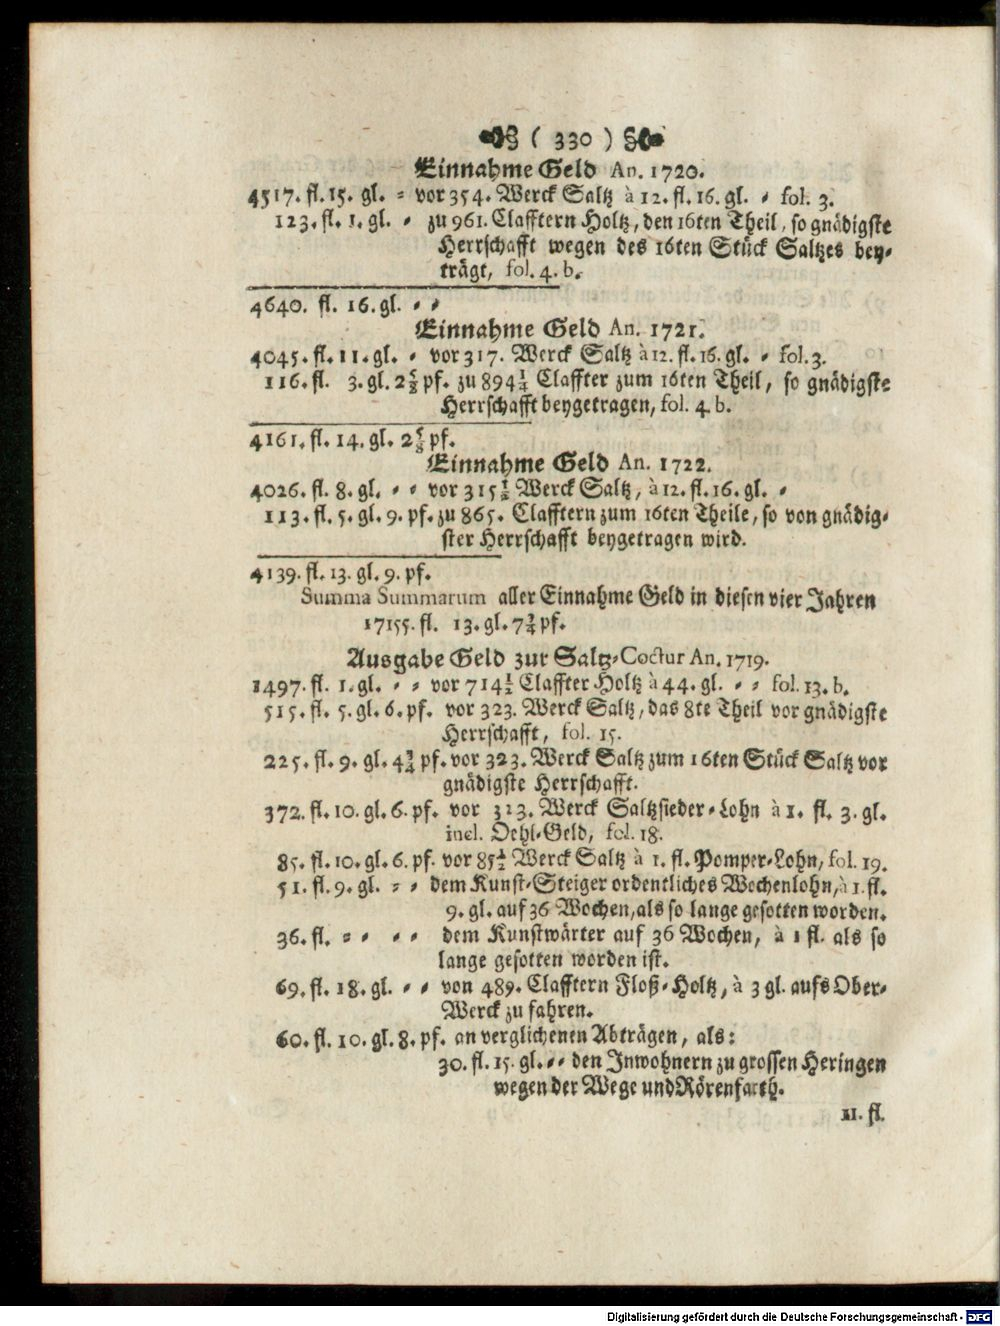 ( 330 )
Einnahme Geld An. 1720.
4517. fl. 15. gl. = vor 354. Werck Saltz à 12. fl. 16. gl. = fol. 3.
123. fl. 1. gl. = zu 961. Clafftern Holtz, den 16ten Theil, so gnädigste
Herrschafft wegen des 16ten Stück Saltzes bey-
trägt, fol. 4. b.
4640. fl. 16. gl. = =
Einnahme Geld An. 1721.
4045. fl. 11. gl. = vor 317. Werck Saltz à 12. fl. 16. gl. = fol. 3.
116. fl. 3. gl. 2⅝ pf. zu 894¼ Claffter zum 16ten Theil, so gnädigste
Herrschafft beygetragen, fol. 4. b.
4161. fl. 14. gl. 2⅝ pf.
Einnahme Geld An. 1722.
4026. fl. 8. gl. = = vor 315½ Werck Saltz, à 12. fl. 16. gl. =
113. fl. 5. gl. 9. pf. zu 865. Clafftern zum 16ten Theile, so von gnädig-
ster Herrschafft beygetragen wird.
4139. fl. 13. gl. 9. pf.
Summa Summarum aller Einnahme Geld in diesen vier Jahren
17155. fl. 13. gl. 7¾ pf.
Ausgabe Geld zur Saltz-Coctur An. 1719.
1497. fl. 1. gl. = = vor 714½ Claffter Holtz à 44. gl. = = fol. 13. b.
515. fl. 5. gl. 6. pf. vor 323. Werck Saltz, das 8te Theil vor gnädigste
Herrschafft, fol. 15.
225. fl. 9. gl. 4¾ pf. vor 323. Werck Saltz zum 16ten Stück Saltz vor
gnädigste Herrschafft.
372. fl. 10. gl. 6. pf. vor 323. Werck Saltzsieder-Lohn à 1. fl. 3. gl.
incl. Oehl-Geld, fol. 18.
85. fl. 10. gl. 6. pf. vor 85½ Werck Saltz à 1. fl. Pomper-Lohn, fol. 19.
51. fl. 9. gl. = = dem Kunst-Steiger ordentliches Wochenlohn, à 1. fl.
9. gl. auf 36 Wochen, als so lange gesotten worden.
36. fl. = = = = dem Kunstwärter auf 36 Wochen, à 1 fl. als so
lange gesotten worden ist.
69. fl. 18. gl. = = von 489. Clafftern Floß-Holtz, à 3 gl. aufs Ober-
Werck zu fahren.
60. fl. 10. gl. 8. pf. an verglichenen Abträgen, als:
30. fl. 15. gl. = = den Inwohnern zu grossen Heringen
wegen der Wege und Rörenfarth.
11. fl.
Digitalisierung gefördert durch die Deutsche Forschungsgemeinschaft - DFG